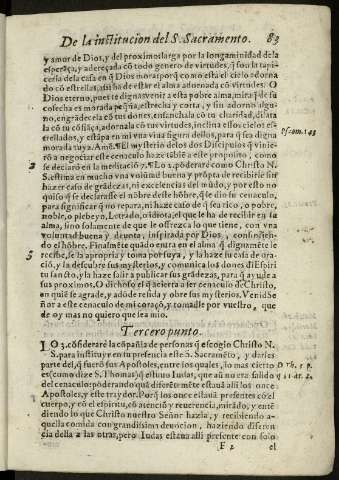 De la institucion del S. Sacramento. 83
y amor de Dios, y del proximo: larga por la longaminidad de la
esperāça, y adereçada cō todo genero de virtudes, q̃ sou la tapi-
ceria de la casa en q̃ Dios mora: porq̃ como esta el cielo adorna
do cō estrellas, assi ha de estar el alma adornada cō virtudes. O
Dios eterno, pues te dignas venir a esta pobre alma, mira q̃ de su
cosecha es morada pequeña, estrecha y corta, y sin adorno algu-
no, engrādecela cō tus dones, ensanchala cō tu charidad, dilata
la cō tu cōfiāça, adornala cō tus virtudes, inclina essos cielos es-
trellados, y estāpa en mi vna viua figura dellos, para q̃ sea digna
morada tuya. Amē. ¶ El mysterio delos dos Discipulos q̃ vinie-
rō a negociar este cenaculo haze tābiē a este proposito, como
se declarō en la meditaciō 3. ¶ Lo 2. pōderarè como Christo N.
S. estima en mucho vna volūtad buena y prōpta de recibirle sin
hazer caso de grādezas, ni excelencias del mūdo, y por esto no
quiso q̃ se declarasse el nōbre deste hōbre, q̃ le dio su cenaculo,
para significar q̃ no repara, ni haze caso de q̃ sea rico, o pobre,
noble, o plebeyo, Letrado, o idiota, el que le ha de recibir en su
alma, sino solamente de que le ofrezca lo que tiene, con vna
voluntad buena y deuota, inspirada por Dios, y consintiēdo
el hōbre. Finalmēte quādo entra en el alma q̃ dignamēte le
recibe, se la apropria y toma por suya, y la haze su casa de ora-
ciō, y la descubre sus mysterios, y comunica los dones del Espiri
tu sancto, y la haze salir a publicar sus grādezas, para q̃ ayude a
sus proximos. O dichoso el que acierta a ser cenaculo de Christo,
en quiē se agrade, y adōde resida y obre sus mysterios. Venid Se
ñor a este cenaculo de mi coraçō, y tomalde por vuestro, que
de oy mas no quiero que sea mio.
Tercero punto.
LO 3. cōsiderarè la cōpañia de personas q̃ escogio Christo N.
S. para instituyr en su presencia este S. Sacramēto, y darles
parte del, q̃ fuerō sus Apostoles, entre los quales, lo mas cierto
es (como dize S. Thomas) q̃ estuuo Iudas, que aū no era salido
del cenaculo: pōderando quā diferētemēte estauā alli los once
Apostoles, y este traydor. Porq̃ los once estauā presentes cō el
cuerpo, y cō el espiritu, cō atenciō y reuerencia, mirādo, y entē
diendo lo que Christo nuestro Señor hazia, y recibiendo a-
quella comida con grandissima deuocion, haziendo diferen
cia della a las otras, pero Iudas estaua alli presente con solo
F 2 el